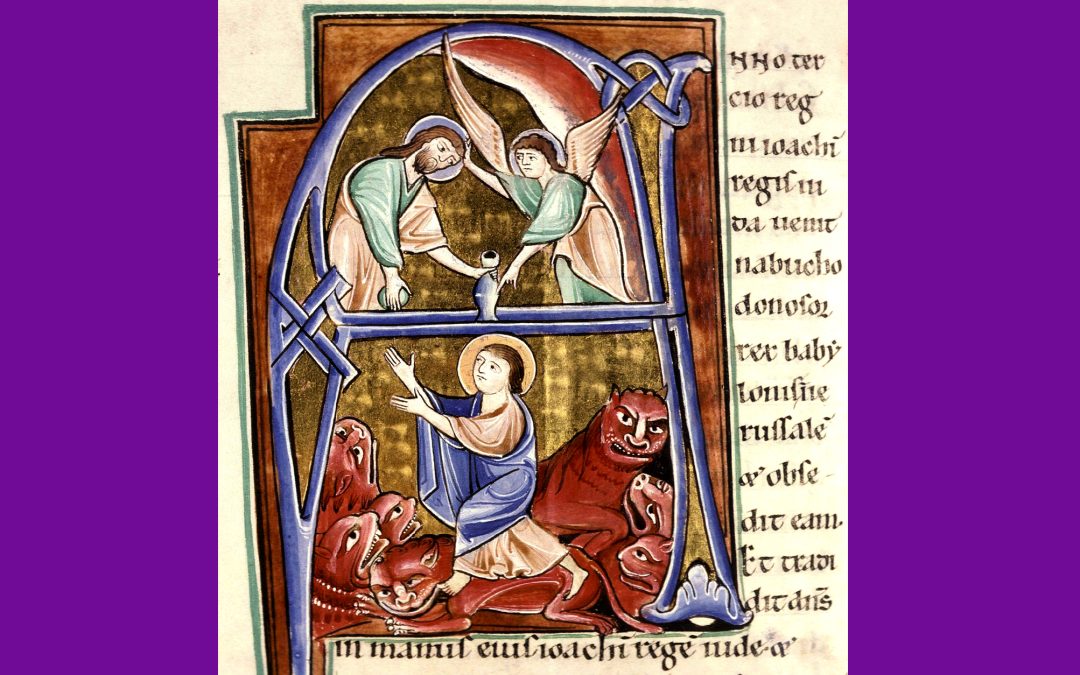 ANNO ter
cio reg
ni ioachī
regis iu
da uenit
nabucho
donosor
rex baby
lonis hie
russalē
& obse
dit eam.
Et tradi
dit dn̄s
in manus eius ioachī regē iude. &